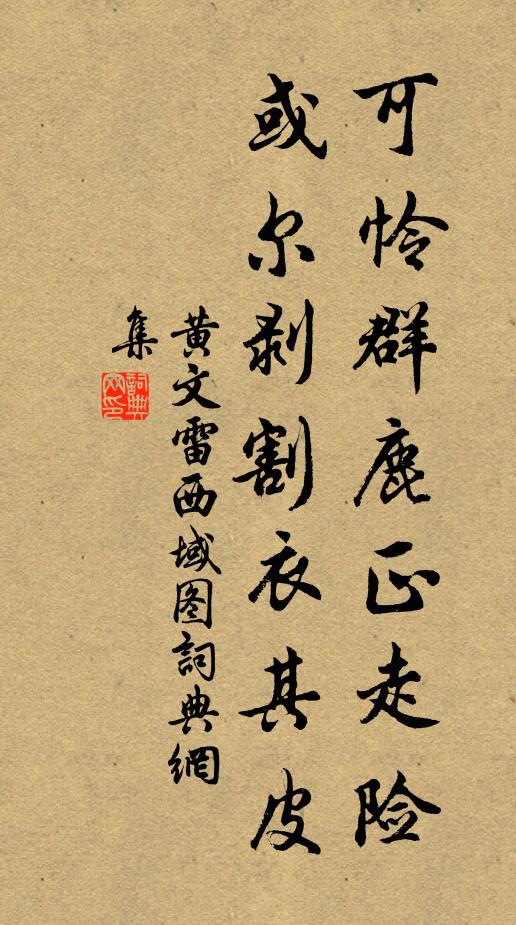 可怜群鹿正走险
或尔剥割衣其皮
黄文雷西域图詞典網
集
詞典網印